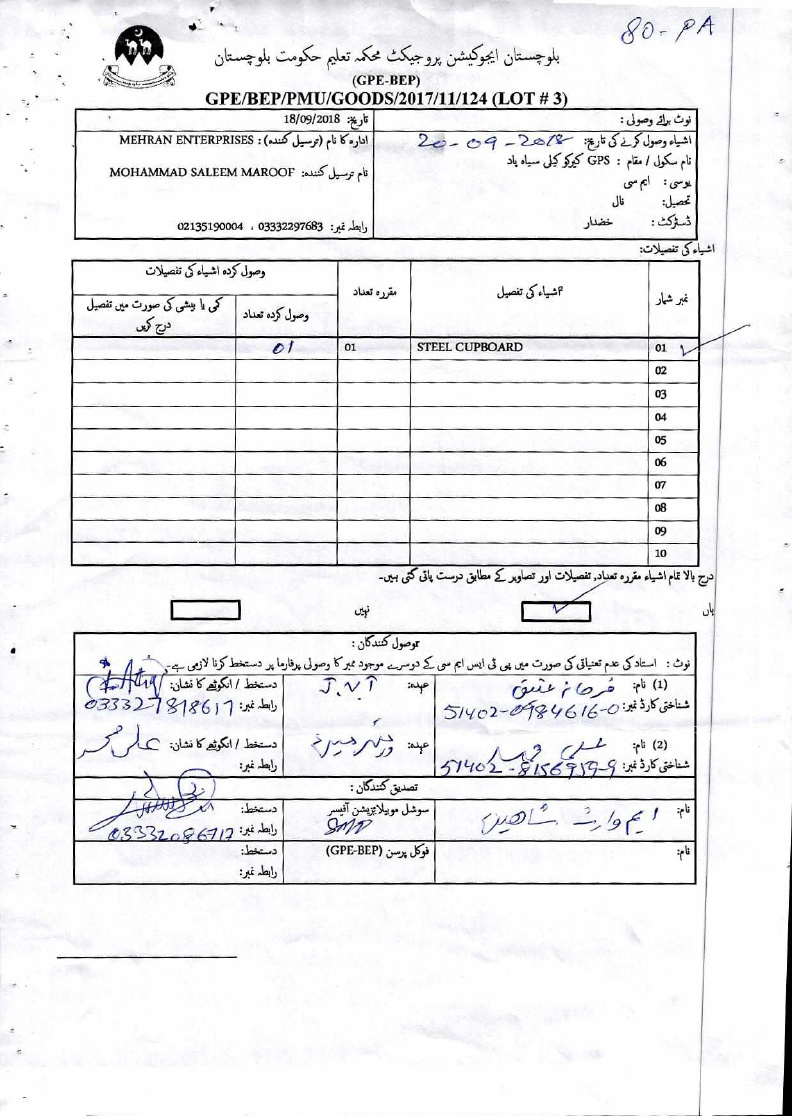 80-PA
بلوچستان ایجوکیشن پروجیکٹ محکمہ تعلیم حکومت بلوچستان
(GPE-BEP)
GPE/BEP/PMU/GOODS/2017/11/124 (LOT # 3)
نوٹ برائے وصولی :
تاریخ: 18/09/2018
اشیاء وصول کرنے کی تاریخ: 20-09-2018
ادارہ کا نام (ترسیل کنندہ) : MEHRAN ENTERPRISES
نام سکول / مقام : GPS کیرکو کیلی سیاہ پاد
نام ترسیل کنندہ: MOHAMMAD SALEEM MAROOF
یوسی : ایم سی
تحصیل: نال
ڈسٹرکٹ : خضدار
رابطہ نمبر: 03332297683 ، 02135190004
اشیاء کی تفصیلات:
نمبر شمار
اشیاء کی تفصیل
مقررہ تعداد
وصول کردہ اشیاء کی تفصیلات
وصول کردہ تعداد
کمی یا بیشی کی صورت میں تفصیل درج کریں
01 STEEL CUPBOARD 01 01
02
03
04
05
06
07
08
09
10
درج بالا تمام اشیاء مقررہ تعداد, تفصیلات اور تصاویر کے مطابق درست پائی گئی ہیں۔
ہاں
نہیں
وصول کنندگان :
نوٹ : استاد کی عدم تعیناتی کی صورت میں پی ٹی ایس ایم سی کے دوسرے موجود ممبر کا وصولی پرفارما پر دستخط کرنا لازمی ہے۔
(1) نام: فرحانہ عتیق
عہدہ: J.V.T
دستخط / انگوٹھے کا نشان:
شناختی کارڈ نمبر: 51402-0984616-0
رابطہ نمبر: 033327818617
(2) نام: علی محمد
عہدہ:
دستخط / انگوٹھے کا نشان: علی محمد
شناختی کارڈ نمبر: 51402-8156959-9
رابطہ نمبر:
تصدیق کنندگان :
نام: ایم وارث شاھین
سوشل موبیلائزیشن آفیسر
SMO
دستخط:
رابطہ نمبر: 03332086717
نام:
فوکل پرسن (GPE-BEP)
دستخط:
رابطہ نمبر: